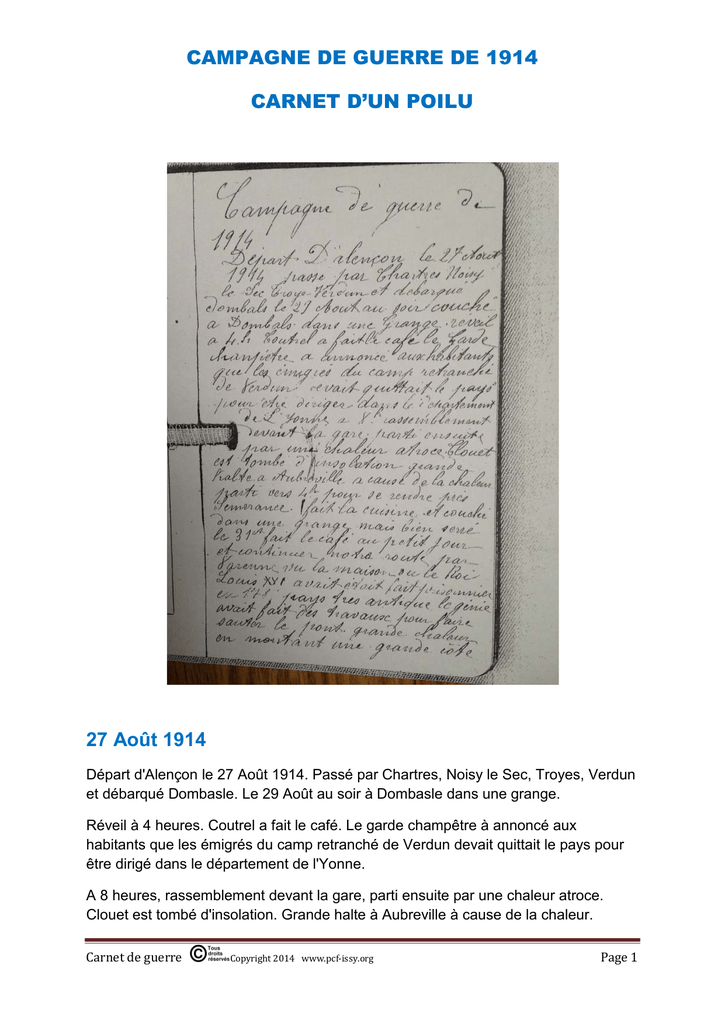 CAMPAGNE DE GUERRE DE 1914
CARNET D'UN POILU
Campagne de guerre de
1914
Départ D'alençon le 27 Aout
1914 passe par Chartres Noisy
le Sec Troye Verdun et débarqué
Dombals le 29 Aout au soir couché
a Dombals dans une Grange reveil
a 4h Coutrel a fait le café le Garde
Champêtre a annoncé aux habitants
que les émigrés du camp retranché
de Verdun devait quittait le pays
pour être diriger dans le département
de L'Yonne a 8h rassemblement
devant la gare parti ensuite
par une chaleur atroce Clouet
est tombé d'insolation grande
halte a Aubréville a cause de la chaleur
parti vers 4h pour se rendre près
fait la cuisine et couché
dans une grange mais bien serré
le 31 fait le café au petit jour
et continuer notre route par
Varenne vu la maison ou le Roi
Louis XVI avait était fait prisonnier
en pays tres antique le génie
avait fait des travaux pour faire
sauter le pont grande chaleur
en montant une grande côte
27 Août 1914
Départ d'Alençon le 27 Août 1914. Passé par Chartres, Noisy le Sec, Troyes, Verdun
et débarqué Dombasle. Le 29 Août au soir à Dombasle dans une grange.
Réveil à 4 heures. Coutrel a fait le café. Le garde champêtre à annoncé aux
habitants que les émigrés du camp retranché de Verdun devait quittait le pays pour
être dirigé dans le département de l'Yonne.
A 8 heures, rassemblement devant la gare, parti ensuite par une chaleur atroce.
Clouet est tombé d'insolation. Grande halte à Aubreville à cause de la chaleur.
Carnet de guerre © Tous droits réservés Copyright 2014 www.pcf-issy.org Page 1